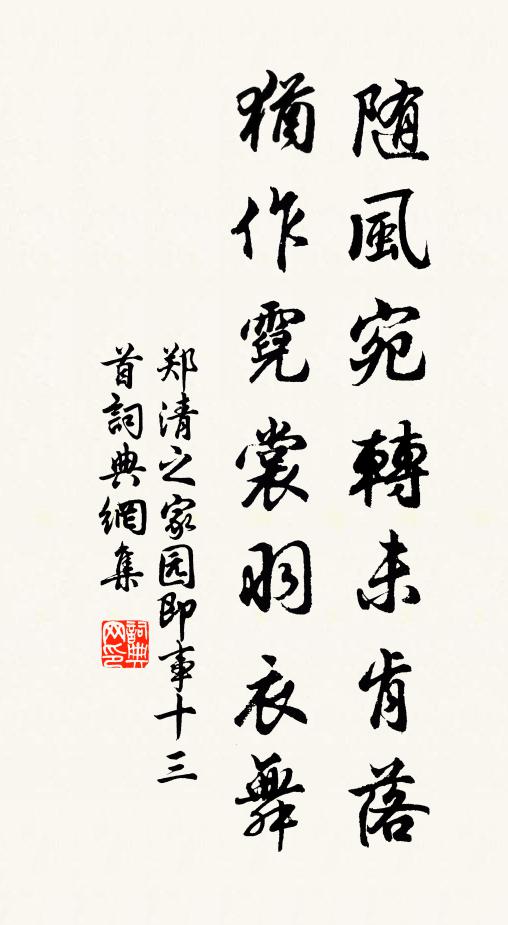 随風宛轉未肯落
猶作霓裳羽衣舞
郑清之家园即事十三
首詞典網集
詞典网印